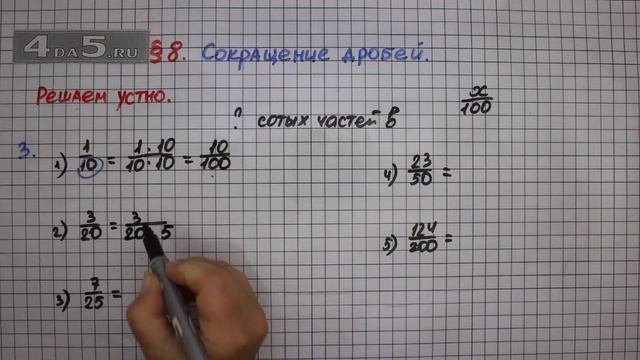 4DA5.RU
§8. Сокращение дробей.
Решаем устно.
? сотых частей в x/100
3.
1) 1/10 = 1·10/10·10 = 10/100
2) 3/20 = 3/20·5
3) 7/25 =
4) 23/50 =
5) 124/200 =